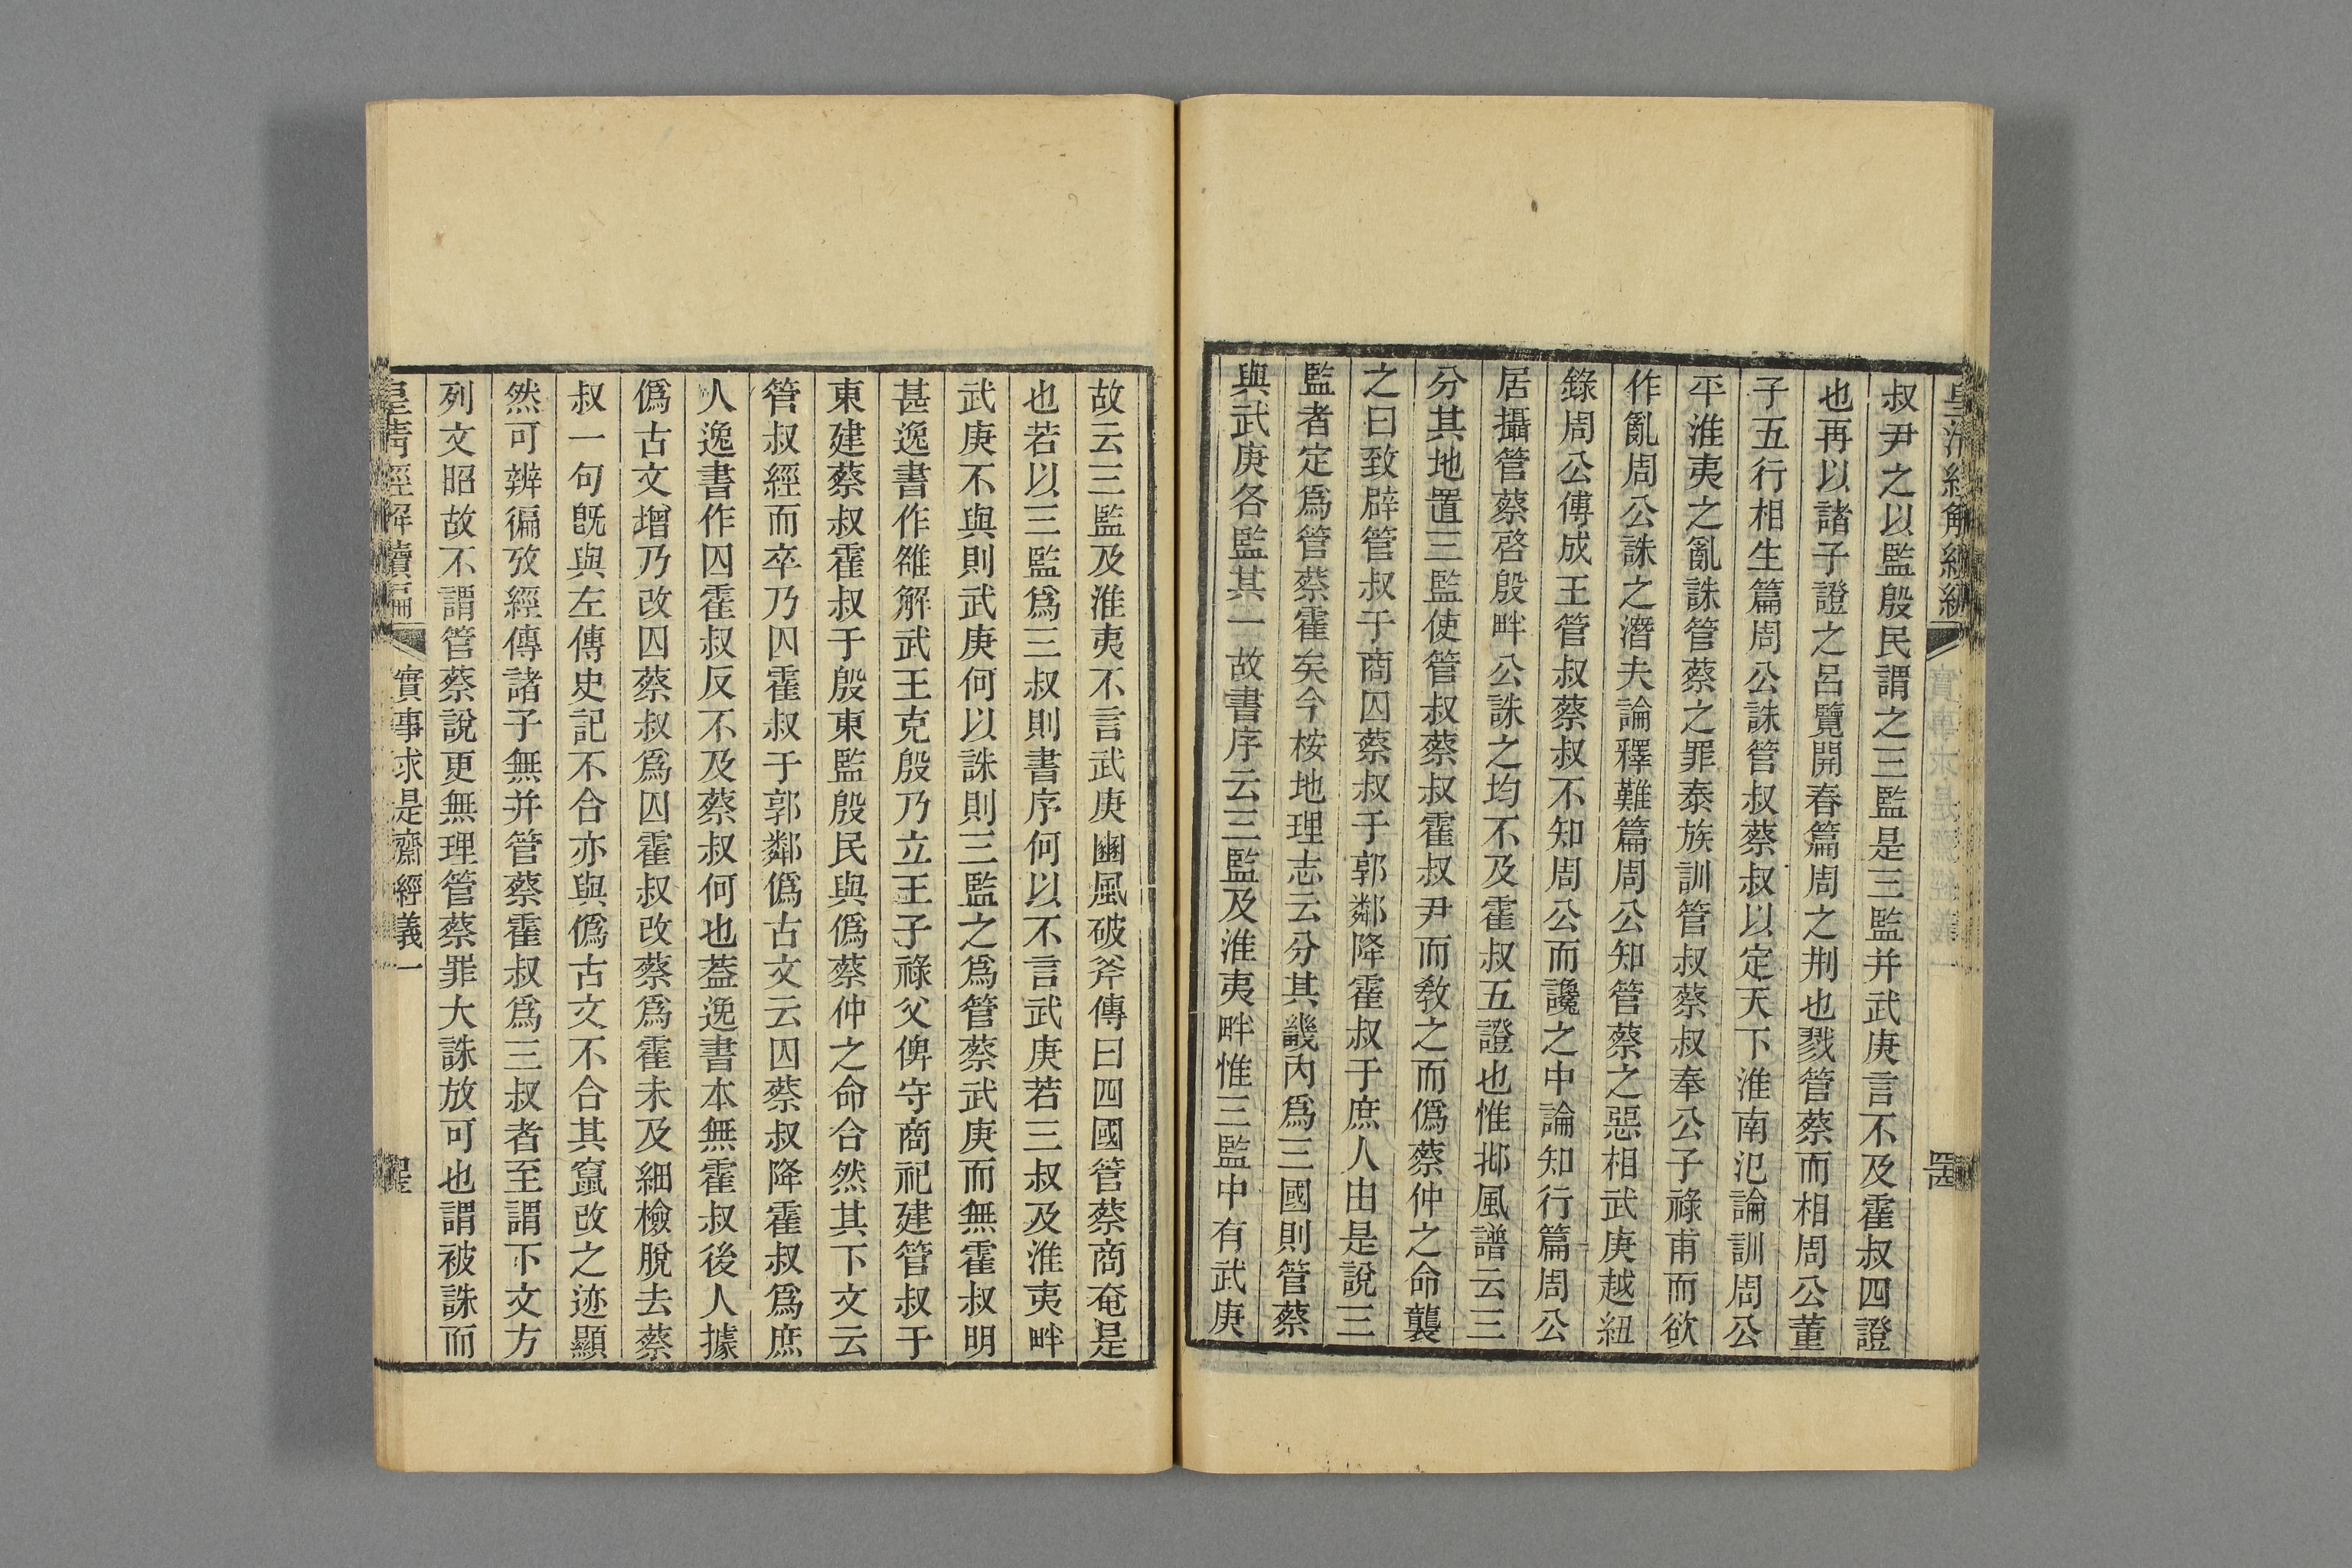 叔尹之以監殷民謂之三監是三監并武庚言不及霍叔四證
也再以諸子證之呂覽開春篇周之刑也戮管蔡而相周公董
子五行相生篇周公誅管叔蔡叔以定天下淮南氾論訓周公
平淮夷之亂誅管蔡之罪泰族訓管叔蔡叔奉公子祿甫而欲
作亂周公誅之潛夫論釋難篇周公知管蔡之惡相武庚越紐
錄周公傅成王管叔蔡叔不知周公而讒之中論知行篇周公
居攝管蔡啓殷畔公誅之均不及霍叔五證也惟邶風譜云三
分其地置三監使管叔蔡叔霍叔尹而敎之而僞蔡仲之命襲
之曰致辟管叔于商囚蔡叔于郭鄰降霍叔于庶人由是說三
監者定爲管蔡霍矣今桉地理志云分其畿內爲三國則管蔡
與武庚各監其一故書序云三監及淮夷畔惟三監中有武庚
故云三監及淮夷不言武庚豳風破斧傳曰四國管蔡商奄是
也若以三監爲三叔則書序何以不言武庚若三叔及淮夷畔
武庚不與則武庚何以誅則三監之爲管蔡武庚而無霍叔明
甚逸書作雒解武王克殷乃立王子祿父俾守商祀建管叔于
東建蔡叔霍叔于殷東監殷民與僞蔡仲之命合然其下文云
管叔經而卒乃囚霍叔于郭鄰僞古文云囚蔡叔降霍叔爲庶
人逸書作囚霍叔反不及蔡叔何也葢逸書本無霍叔後人據
僞古文增乃改囚蔡叔爲囚霍叔改蔡爲霍未及細檢脫去蔡
叔一句旣與左傳史記不合亦與僞古文不合其竄改之迹顯
然可辨徧攷經傳諸子無并管蔡霍叔爲三叔者至謂下文方
列文昭故不謂管蔡說更無理管蔡罪大誅放可也謂被誅而
皇淸經解續編 實事求是齋經義一